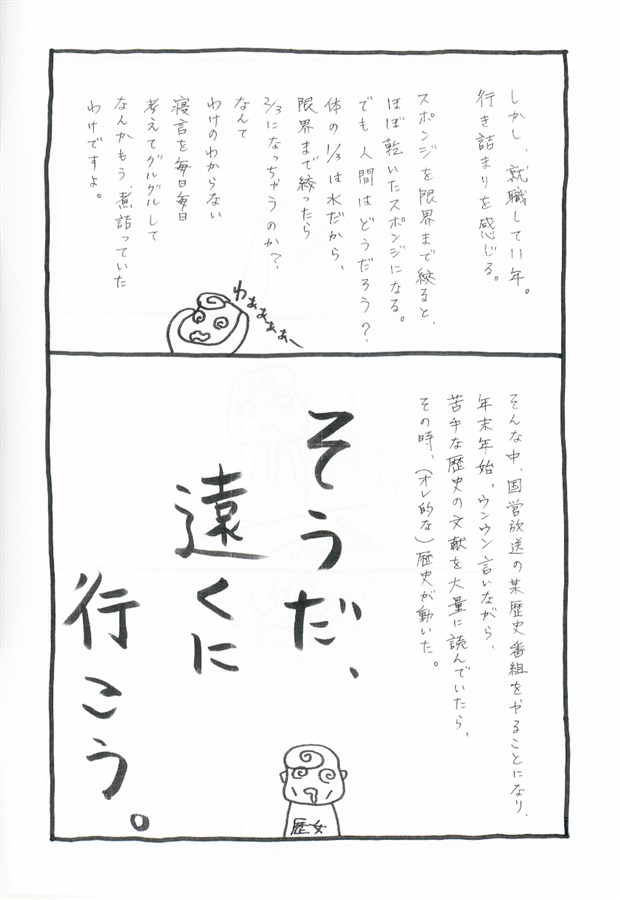 しかし、就職して11年。
行き詰まりを感じる。
スポンジを限界まで絞ると、
ほぼ乾いたスポンジになる。
でも人間はどうだろう?
体の1/3は水だから、
限界まで絞ったら
2/3になっちゃうのか?
なんて
わけのわからない
寝言を毎日毎日
考えてグルグルして
なんかもう煮詰っていた
わけですよ。
わぁぁぁぁぁー
そんな中、国営放送の某歴史番組をやることになり、
年末年始、ウンウン言いながら、
苦手な歴史の文献を大量に読んでいたら、
その時、(オレ的な)歴史が動いた。
そうだ、
遠くに
行こう。
歴女